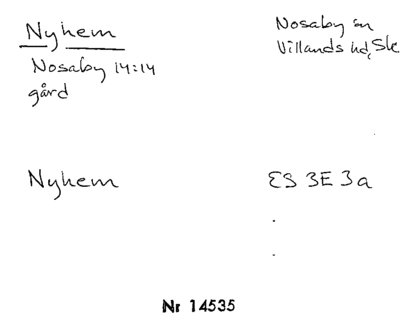 Nyhem
Nosaby sn
Villands hd, Sk
Nosaby 14:14
gård
Nyhem
ES 3E 3a
Nr 14535